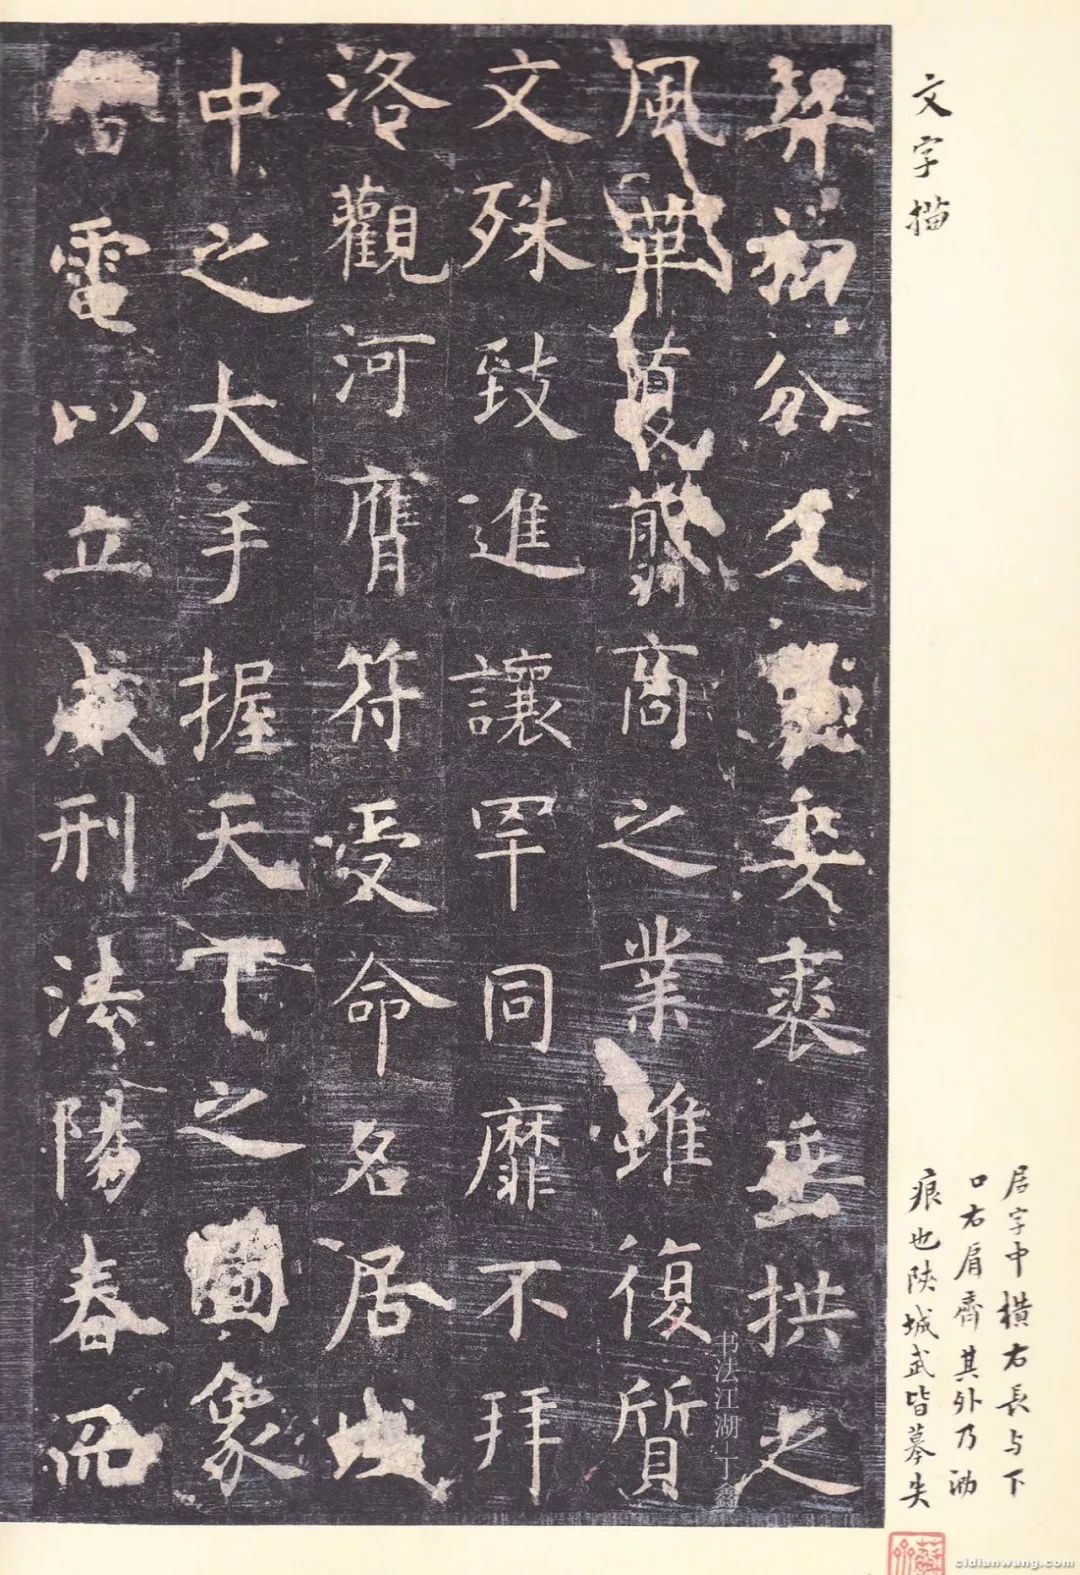 文字描
契初分爻象委裘垂拱之
風革夏翦商之業雖復質
文殊致進讓罕同靡不拜
洛觀河膺符受命名居域
中之大手握天下之圖象
雷電以立威刑法陽春而
居字中橫右長与下
口右肩齊其外乃泐
痕也陝城武皆摹失
书法江湖-丁鑫
cidianwang.com